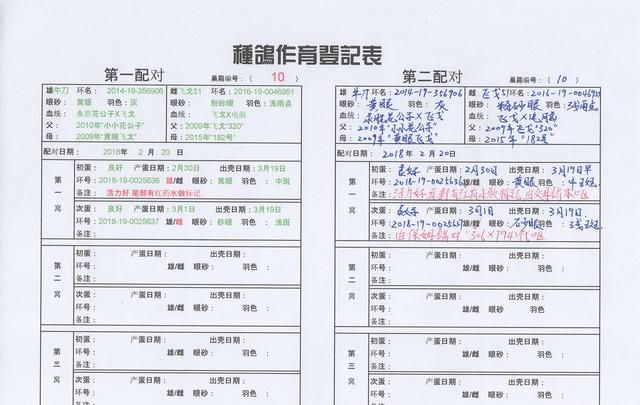 種鴿作育登記表
第一配对 巢箱编号：（ 10 ）
雄 牛刀 环名： 2014-19-356906 雌 飞戈51 环名： 2016-19-0046951
眼砂： 黄眼 羽色： 灰 眼砂： 粉砂眼 羽色： 浅雨点
血统： 永胜花公子X飞戈 血统： 飞戈X电脑
父： 2010年“小小花公子” 父： 2009年飞戈“320”
母： 2009年“黄眼飞戈” 母： 2015年“182号”
配对日期： 2018年 2 月 20 日
第一窝
初蛋： 良好 产蛋日期： 2月30日 出壳日期： 3月19日
环号： 2018-19-0025636 雄/雌 眼砂： 黄眼 羽色： 中斑
备注： 活力好 尾部有红药水做标记
次蛋： 良好 产蛋日期： 3月1日 出壳日期： 3月19日
环号： 2018-19-0025637 雄/雌 眼砂： 砂眼 羽色： 浅斑
备注：
第二窝
初蛋： 产蛋日期： 出壳日期：
环号： 雄/雌 眼砂： 羽色：
备注：
次蛋： 产蛋日期： 出壳日期：
环号： 雄/雌 眼砂： 羽色：
备注：
第三窝
初蛋： 产蛋日期： 出壳日期：
环号： 雄/雌 眼砂： 羽色：
备注：
次蛋： 产蛋日期： 出壳日期：
第二配对 巢箱编号：（ 10 ）
雄 牛刀 环名： 2014-19-356906 雌 飞戈51 环名： 2016-19-0046951
眼砂： 黄眼 羽色： 灰 眼砂： 粉砂眼 羽色： 浅雨点
血统： 永胜花公子X飞戈 血统： 飞戈X
父： 2010年“小小花公子” 父： 2009年飞戈“320”
母： 2009年“黄眼飞戈” 母： 2015年“182号”
配对日期： 2018年 2 月 20日
第一窝
初蛋： 良好 产蛋日期： 2月30日 出壳日期： 3月19日早
环号： 2018-19-0025636 雄/雌 眼砂： 黄眼 羽色： 中斑
备注： 活力好
次蛋： 良好 产蛋日期： 3月1日 出壳日期： 3月19日
环号： 2018-19-0025637 雄/雌 眼砂： 砂眼 羽色： 浅斑
备注： 由保姆鸽对
第二窝
初蛋： 产蛋日期： 出壳日期：
环号： 雄/雌 眼砂： 羽色：
备注：
次蛋： 产蛋日期： 出壳日期：
环号： 雄/雌 眼砂： 羽色：
备注：
第三窝
初蛋： 产蛋日期： 出壳日期：
环号： 雄/雌 眼砂： 羽色：
备注：
次蛋： 产蛋日期： 出壳日期：